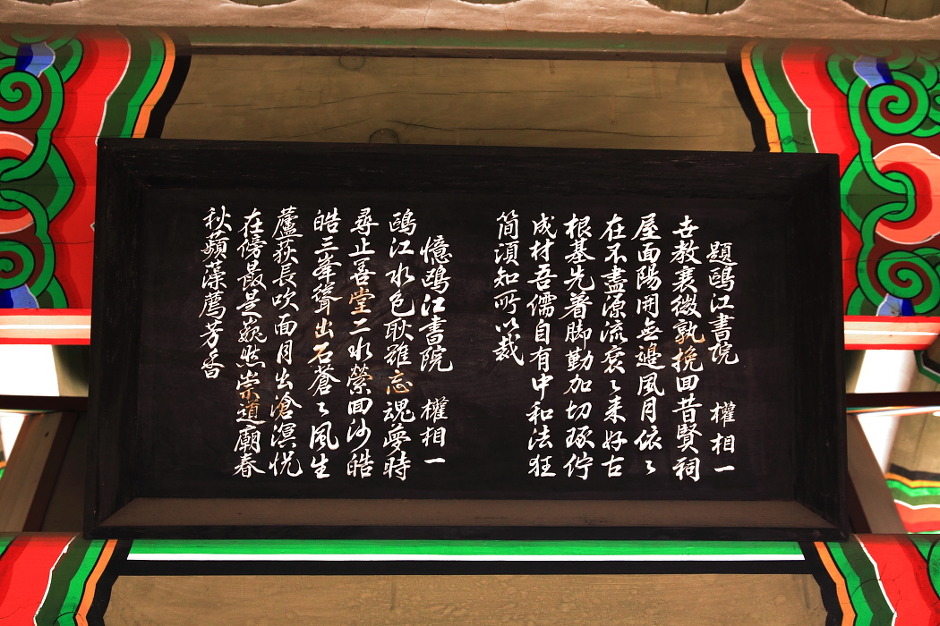 題鷗江書院 權相一
世教衰微孰挽回昔賢祠
屋面陽開無邉風月依〻
在不盡源流袞〻来好古
根基先著脚勤加切琢佇
成材吾儒自有中和法狂
简須知所以裁
憶鷗江書院 權相一
鷗江水色耿難忘魂夢時
尋止善堂二水縈回沙皓
皓三峯聳出石蒼〻風生
蘆荻長吹面月出滄溟怳
在傍最是巍然崇道廟春
秋蘋藻薦芳香